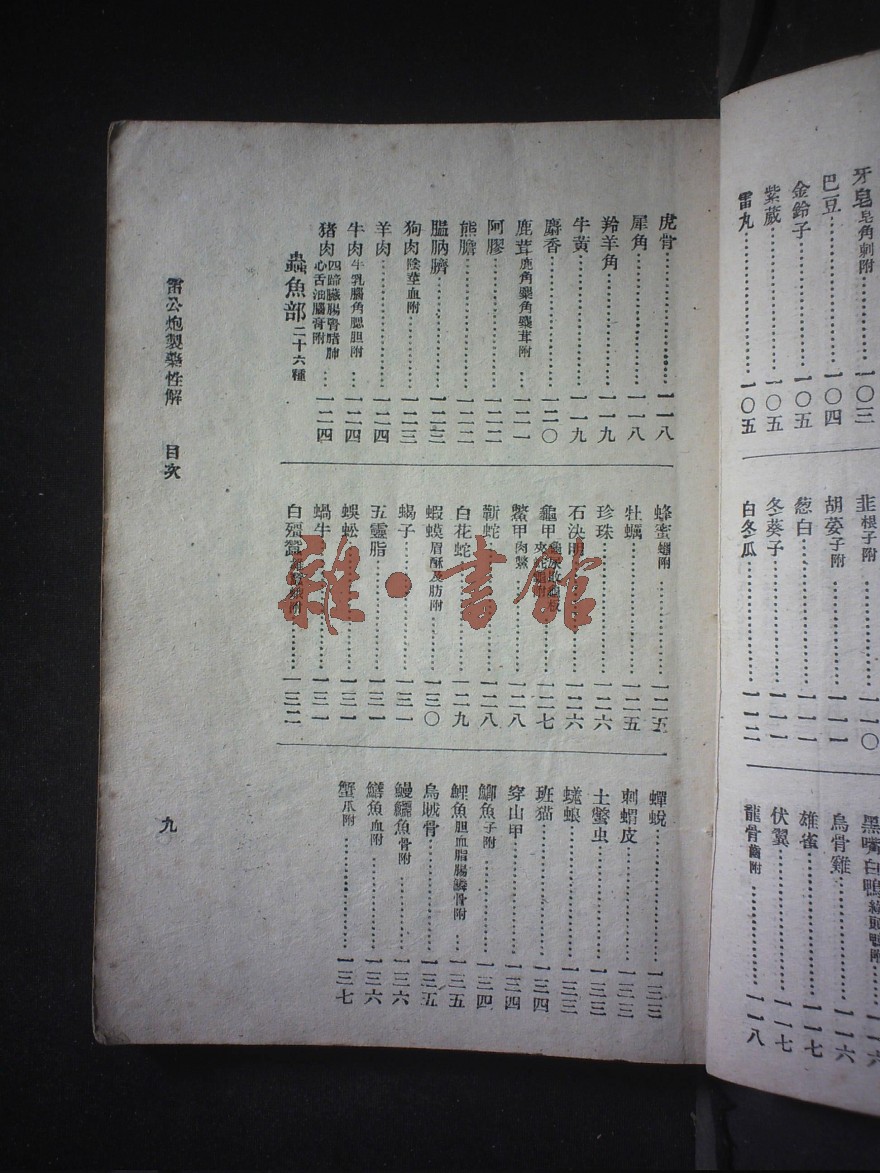 牙皂皂角刺附…………一〇三
巴豆…………一〇四
金鈴子…………一〇五
紫葳…………一〇五
雷丸…………一〇五
韭根子附…………一一〇
胡荽子附…………一一一
葱白…………一一一
冬葵子…………一一一
白冬瓜…………一一二
黑嘴白鴨綠頭鴨附…………一一六
烏骨雞…………一一六
雄雀…………一一七
伏翼…………一一七
龍骨齒附…………一一八
虎骨…………一一八
犀角…………一一八
羚羊角…………一一九
牛黃…………一一九
麝香…………一二〇
鹿茸鹿角麋角麋茸附…………一二一
阿膠…………一二二
熊膽…………一二二
膃肭臍…………一二三
狗肉陰莖血附…………一二三
羊肉…………一二四
牛肉牛乳腦角腮胆附…………一二四
猪肉四蹄臟腸腎脂肺心舌油腦膏附…………一二四
蟲魚部二十六種
蜂蜜蠟附…………一二五
牡蠣…………一二五
珍珠…………一二六
石決明…………一二六
龜甲…………一二七
鱉甲肉…………一二八
蘄蛇…………一二八
白花蛇…………一二九
蝦蟆眉酥及肪附…………一三〇
蝎子…………一三一
五靈脂…………一三一
蜈蚣…………一三一
蝸牛…………一三一
白殭蠶附…………一三二
蟬蛻…………一三三
刺蝟皮…………一三三
土鱉虫…………一三三
蜣螂…………一三三
班猫…………一三四
穿山甲…………一三四
鯽魚子附…………一三四
鯉魚胆血脂腸鱗骨附…………一三五
烏賊骨…………一三五
鰻鱺魚骨附…………一三六
鱔魚血附…………一三六
蟹爪附…………一三七
雷公炮製藥性解 目次
九
雜·書館